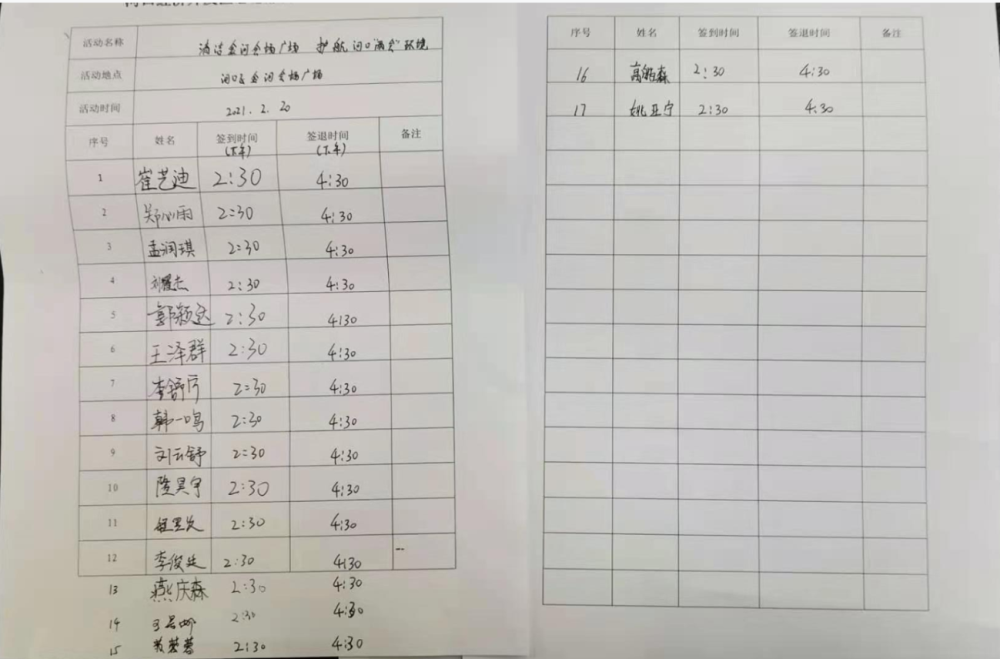 活动名称
活动地点
活动时间 2021. 2. 20
序号 姓名 签到时间 签退时间 备注
(下午) (下午)
1 崔艺迪 2:30 4:30
2 郑心雨 2:30 4:30
3 孟润琪 2:30 4:30
4 2:30 4:30
5 郭颖达 2:30 4:30
6 王泽群 2:30 4:30
7 李舒 2:30 4:30
8 韩一鸣 2:30 4:30
9 刘云舒 2:30 4:30
10 隆昊宇 2:30 4:30
11 2:30 4:30
12 李俊廷 2:30 4:30
13 燕庆森 2:30 4:30
14 2:30 4:30
15 2:30 4:30
序号 姓名 签到时间 签退时间 备注
16 高 森 2:30 4:30
17 姚亚宁 2:30 4:30